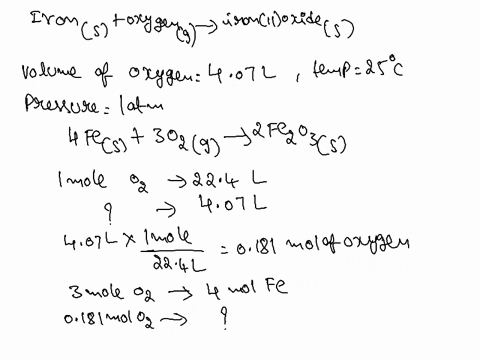 Iron(s) + oxygen(g) → iron(II)oxide(s)
volume of oxygen = 4.07L , temp = 25°C
Pressure = 1atm
4Fe(s) + 3O2(g) → 2Fe2O3(s)
1mole O2 → 22.4 L
? → 4.07L
4.07L × 1mole / 22.4L = 0.181 mol of oxygen
3mole O2 → 4 mol Fe
0.181mol O2 → ?